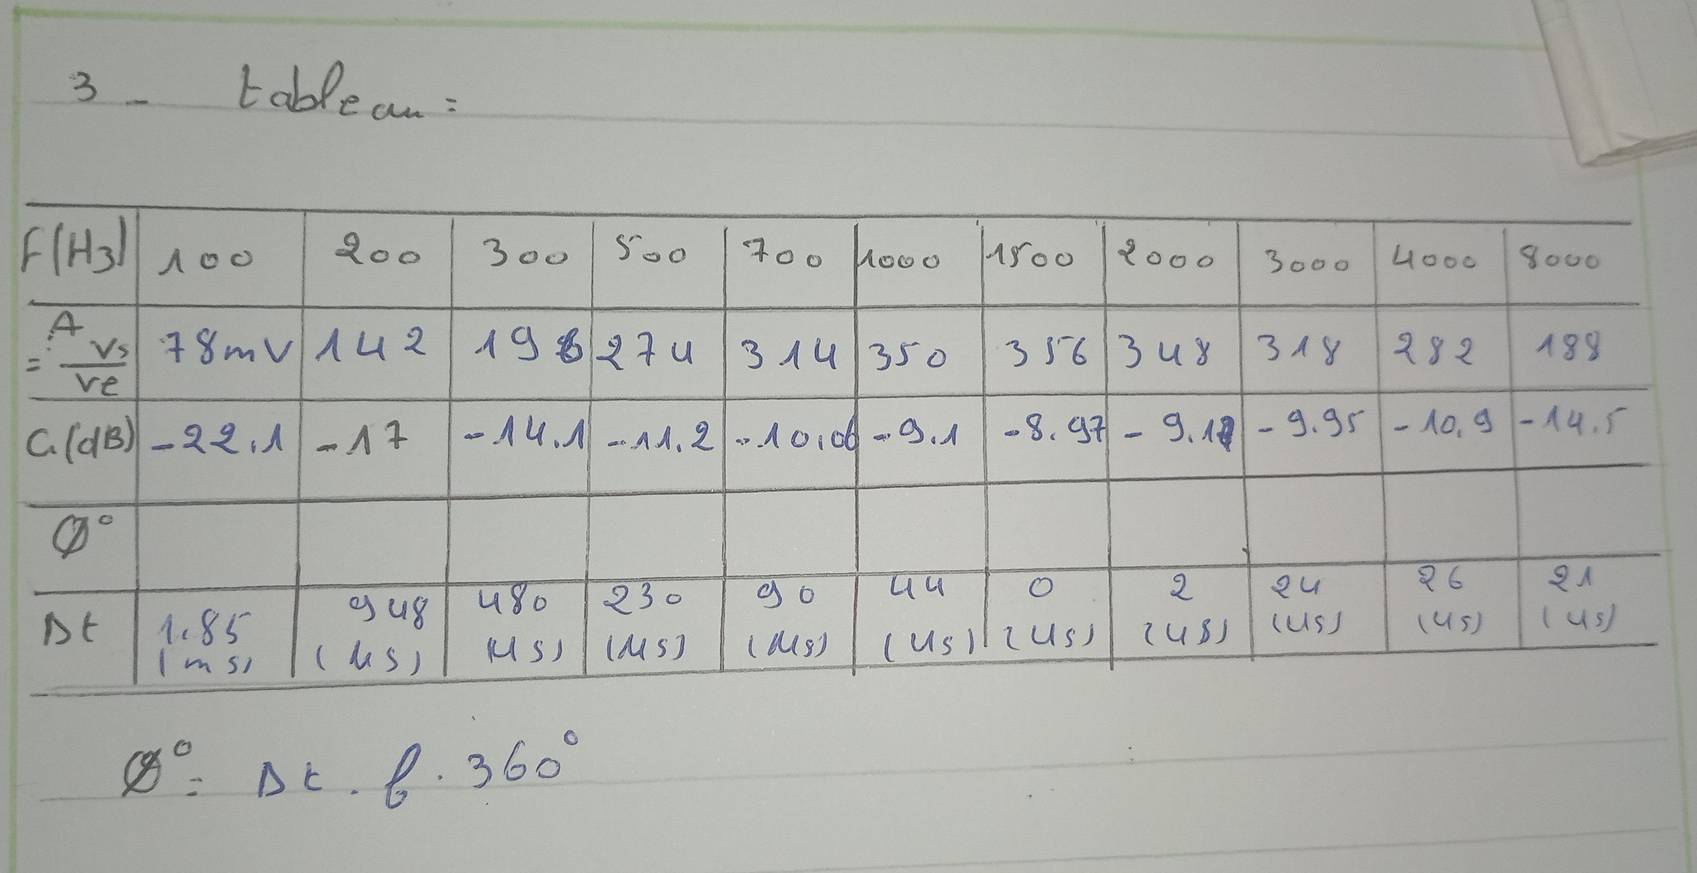 3 - tableau :
F(Hz) 100 200 300 500 700 1000 1500 2000 3000 4000 8000
A = Vs/Ve 78mV 142 196 274 314 350 356 348 318 282 188
G(dB) -22.1 -17 -14.1 -11.2 -10.06 -9.1 -8.97 -9.17 -9.95 -10.9 -14.5
Ø°
Δt 1.85 (ms) 948 (μs) 480 μs) 230 (μs) 90 (μs) 44 (μs) 0 (μs) 2 (μs) 24 (μs) 26 (μs) 21 (μs)
Ø° = Δt . f . 360°